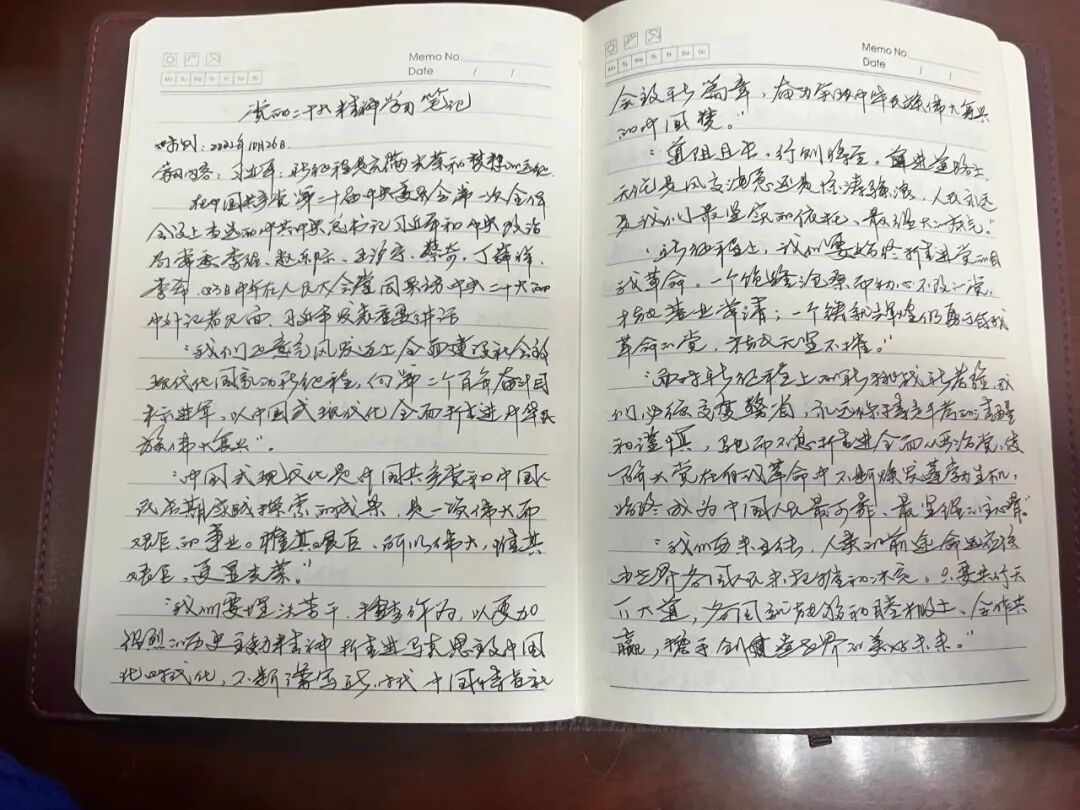 Memo No.
Date / /
Mo Tu We Th Fr Sa Su
党的二十大精神学习笔记
时间：2022年10月26日
学习内容：习近平：新征程是充满光荣和梦想的远征
在中国共产党第二十届中央委员会第一次全体
会议上当选的中共中央总书记习近平和中央政治
局常委李强、赵乐际、王沪宁、蔡奇、丁薛祥、
李希，23日中午在人民大会堂同采访中共二十大的
中外记者见面，习近平发表重要讲话
“我们正意气风发迈上全面建设社会主义
现代化国家的新征程，向第二个百年奋斗目
标进军，以中国式现代化全面推进中华民
族伟大复兴”。
“中国式现代化是中国共产党和中国人
民长期实践探索的成果，是一项伟大而
艰巨的事业。惟其艰巨，所以伟大，惟其
艰巨，更显光荣。”
“我们要埋头苦干，担当作为，以更加
强烈的历史主动精神推进马克思主义中国
化时代化，不断谱写新时代中国特色社
Memo No.
Date / /
Mo Tu We Th Fr Sa Su
会主义新篇章，奋力实现中华民族伟大复兴
的中国梦。”
“道阻且长，行则将至。前进道路上
无论是风高浪急还是惊涛骇浪，人民永远
是我们最坚实的依托、最强大的底气。”
“新征程上，我们要始终推进党的自
我革命。一个饱经沧桑而初心不改的党，
才能基业常青；一个铸就辉煌仍勇于自我
革命的党，才能无坚不摧。”
“面对新征程上的新挑战新考验，我
们必须高度警省，永远保持赶考的清醒
和谨慎，驰而不息推进全面从严治党，使
百年大党在自我革命中不断焕发蓬勃生机，
始终成为中国人民最可靠、最坚强的主心骨。”
“我们历来主张，人类的前途命运应该
由世界各国人民来把握和决定。只要共行天
下大道，各国就能够和睦相处、合作共
赢，携手创造世界的美好未来。”